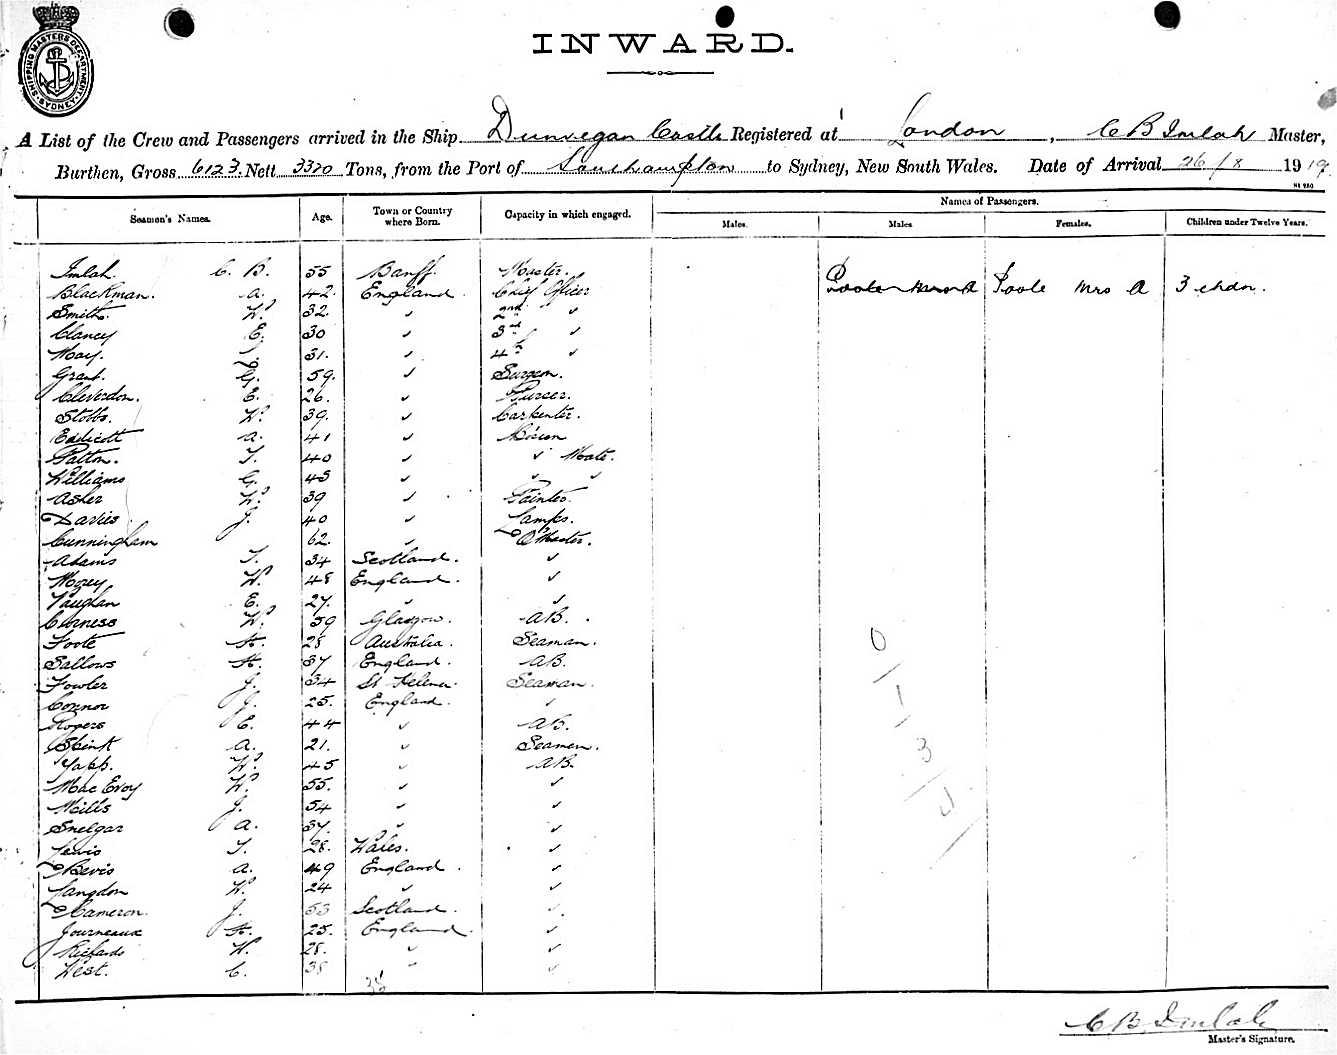 SHIPPING MASTERS DEPARTMENT SYDNEY
INWARD.
A List of the Crew and Passengers arrived in the Ship Dunvegan Castle Registered at London, C B Imlah Master,
Burthen, Gross 6123 Nett 3320 Tons, from the Port of Southampton to Sydney, New South Wales. Date of Arrival 26/8 1919
Names of Passengers.
Seamen's Names. Age. Town or Country where Born. Capacity in which engaged. Males. Males Females. Children under Twelve Years.
Imlah. C. B. 55 Banff. Master.
Blackman. A. 42. England. Chief Officer Poole Mrs A 3 chdn.
Smith. W. 32. " 2nd "
Clancy E. 30 " 3rd "
May. 31. " 4th "
Grant. G. 59. " Surgeon.
Cleverdon. E. 26. " Purser.
Stobbs. W. 39. " Carpenter.
Endicott A. 41 "
Patton. T. 40 " " Mate.
Williams G. 45 " " "
Asher W. 39 " Painter.
Davies J. 40 " Lamps.
Cunningham 62. " Q Master.
Adams T. 34 Scotland. "
Morey W. 48 England. "
Vaughan E. 27. " "
W. 59 Glasgow. AB.
Foote H. 28 Australia. Seaman.
Sallows H. 37 England. AB.
Fowler J. 34 St Helena. Seaman.
Connor J. 25. England. "
Rogers C. 44 " AB.
Skink A. 21. " Seaman.
Yapp. W. 45 " AB.
Mac Evoy W. 55. " "
Mills J. 54 " "
Snelgar A. 37. " "
Lewis T. 28. Wales. "
Bevis A. 49 England. "
Langdon W. 24 " "
Cameron. J. 53 Scotland. "
Journeaux H. 25. England. "
Richards W. 28. " "
West. C. 38 " "
35
C B Imlah
Master's Signature.